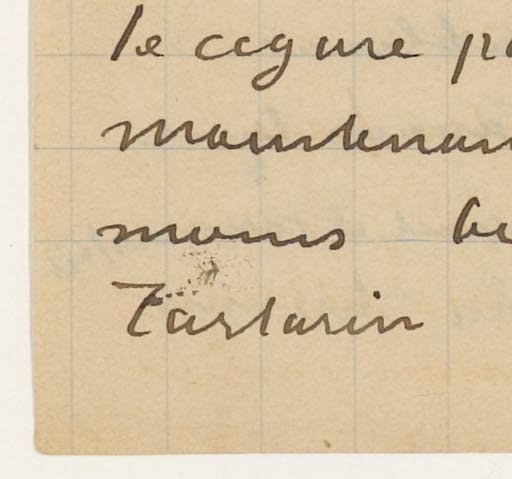 le cegure
maintenan
moins
Tartarin